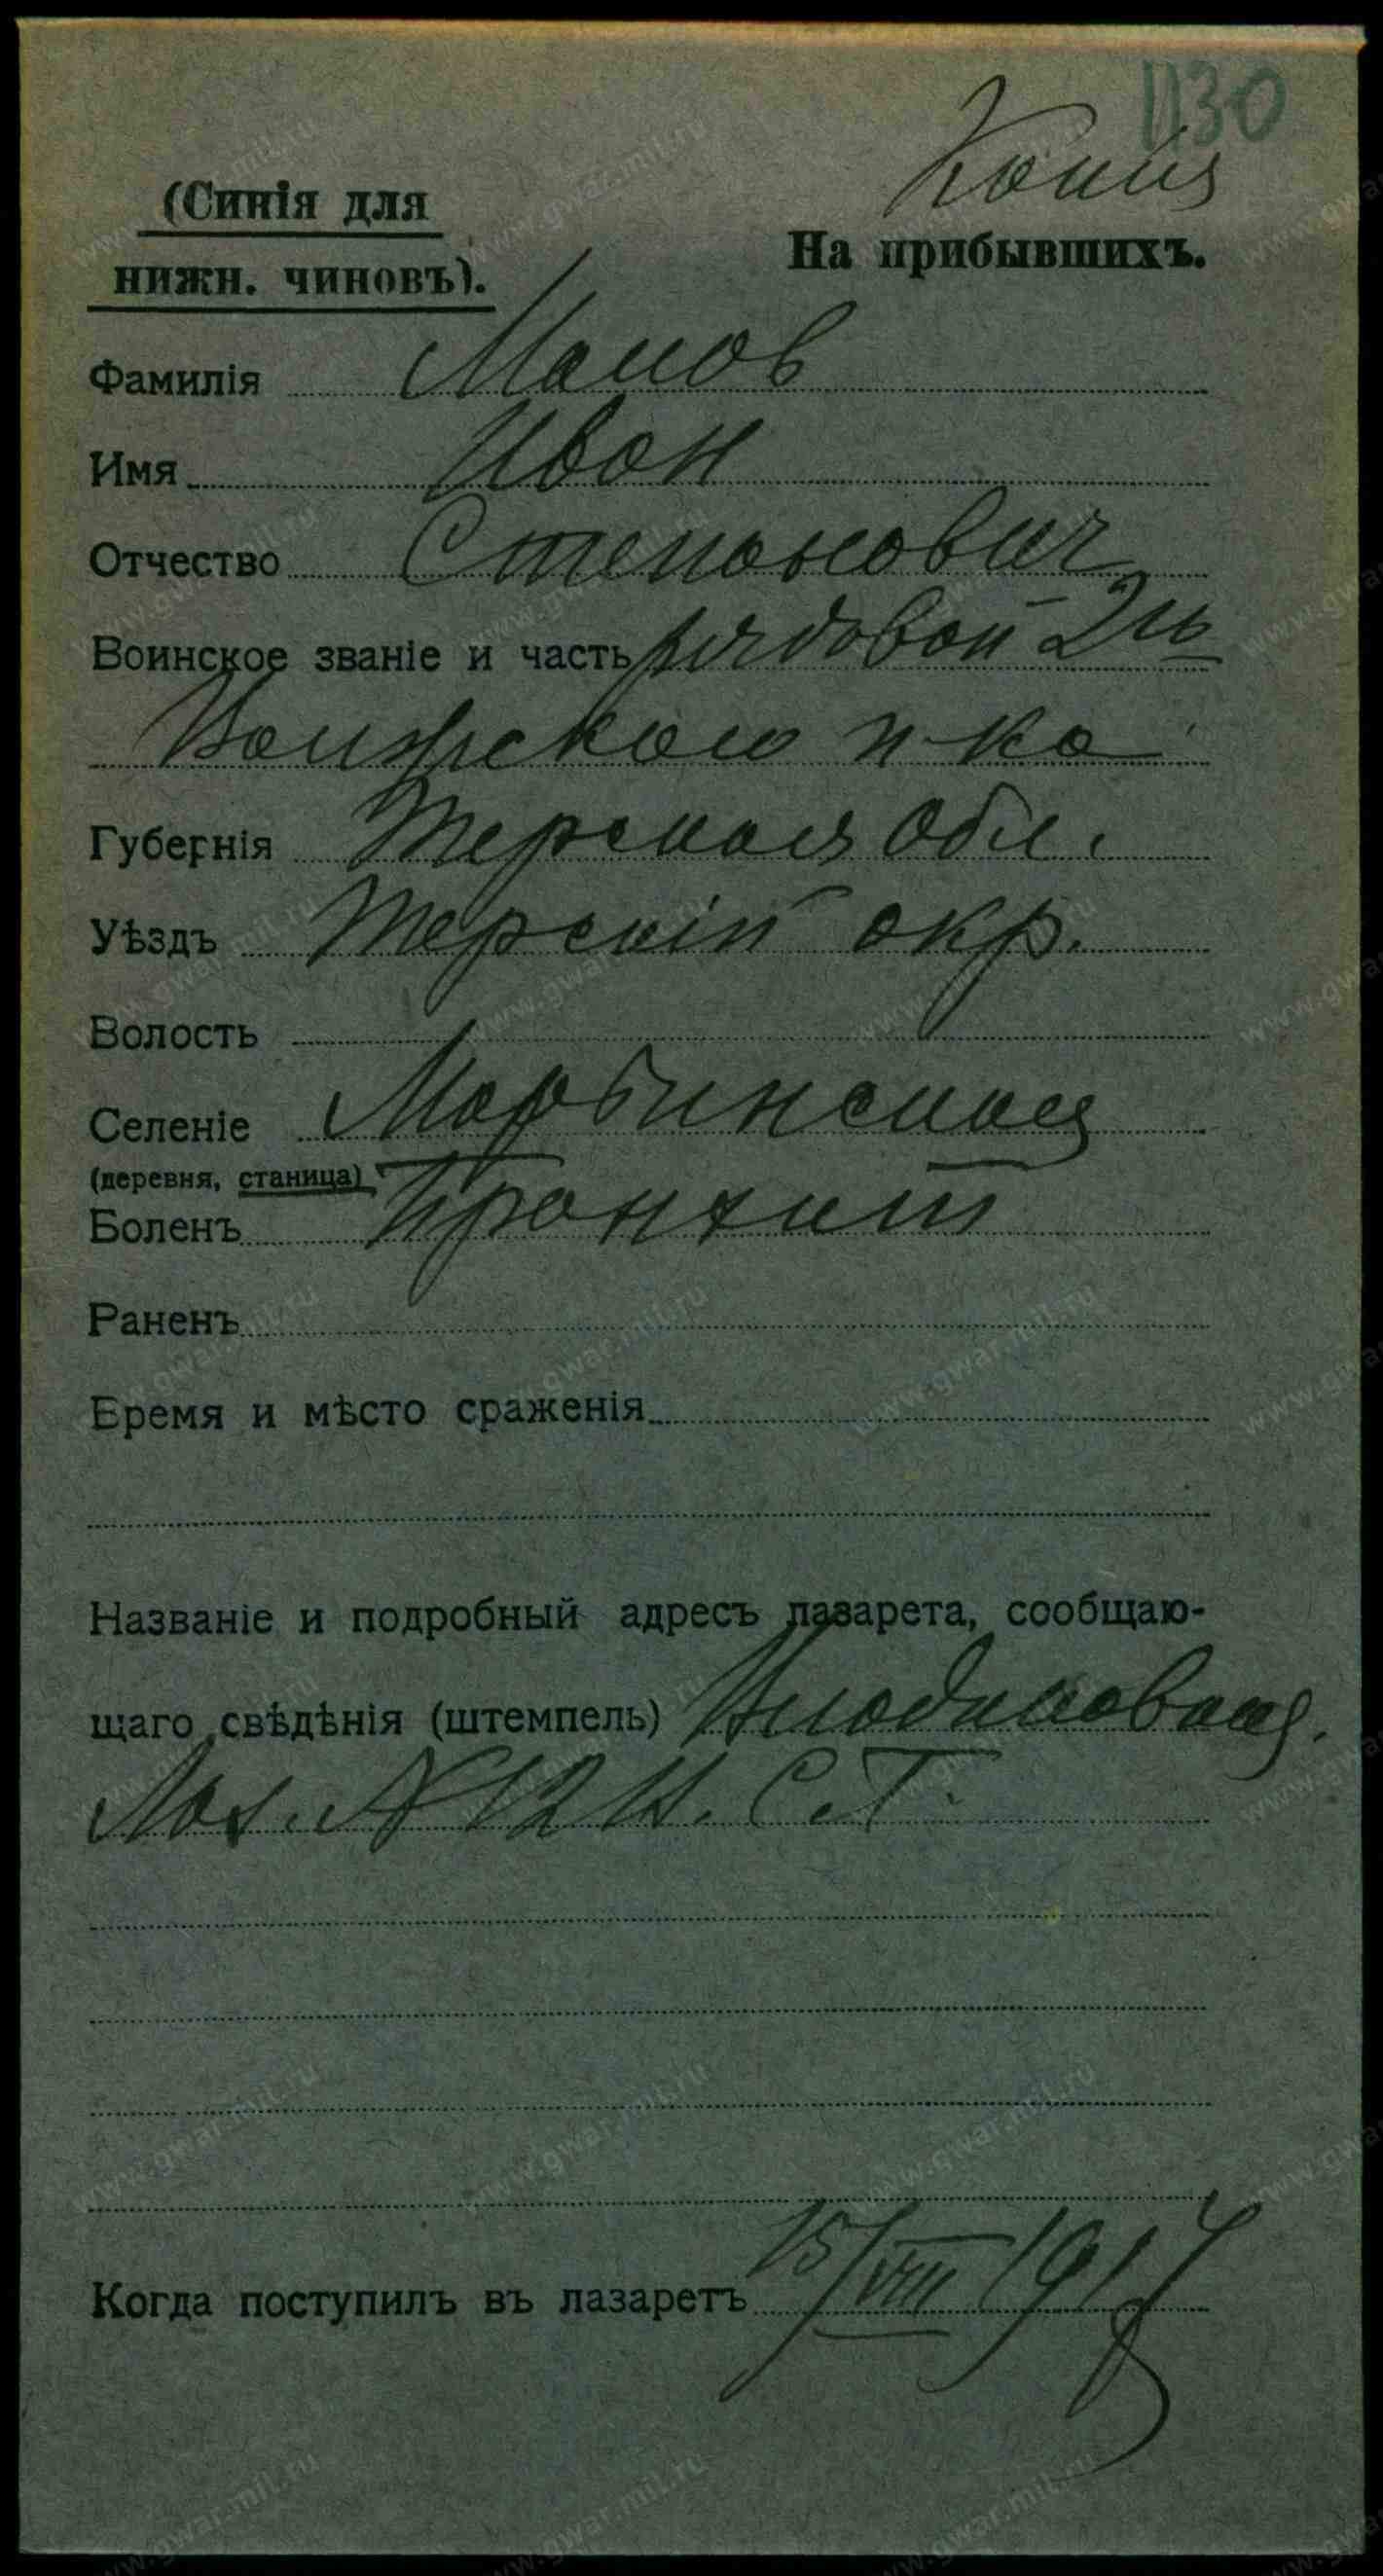 1130
Копия
(Синія для
нижн. чиновъ).
На прибывшихъ.
Фамилія Мамов
Имя Иван
Отчество Степанович
Воинское званіе и часть рядовой 2го
Волжского п-ка
Губернія Терская Обл.
Уѣздъ Терскій окр.
Волость
Селеніе Марьинская
(деревня, станица)
Боленъ Бронхит
Раненъ
Время и мѣсто сраженія
Названіе и подробный адресъ лазарета, сообщаю-
щаго свѣдѣнія (штемпель) Владикавказ.
Лаз. № 12 В. С. Г.
Когда поступилъ въ лазаретъ 15/VIII 1917